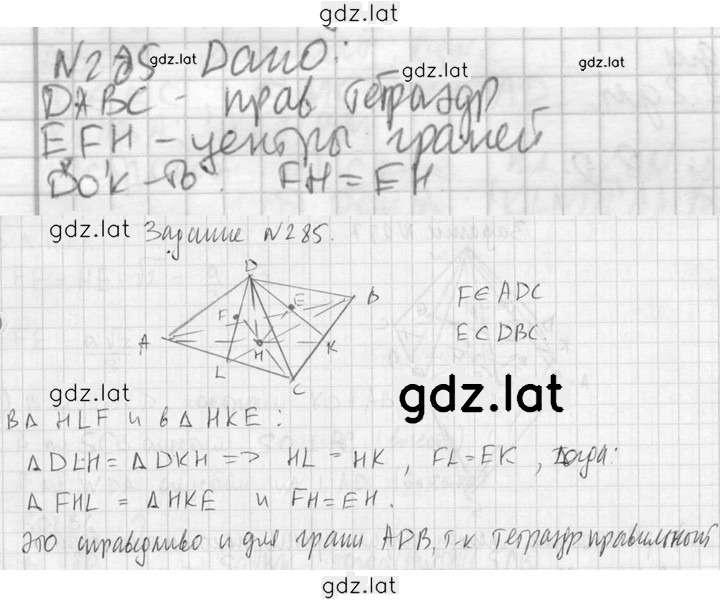 gdz.lat
N285 gdz.lat Дано:
gdz.lat gdz.lat
DABC - прав тетраэдр
EFH - центры граней
Док-ть FH = EH
gdz.lat Задание N285.
D
E B F∈ADC
F
A H K E⊂DBC.
L
C
gdz.lat gdz.lat
В Δ HLF и в Δ HKE:
Δ DLH = Δ DKH => HL = HK, FL = EK, тогда:
Δ FHL = Δ HKE и FH = EH.
Это справедливо и для грани ADB, т.к тетраэдр правильный
gdz.lat